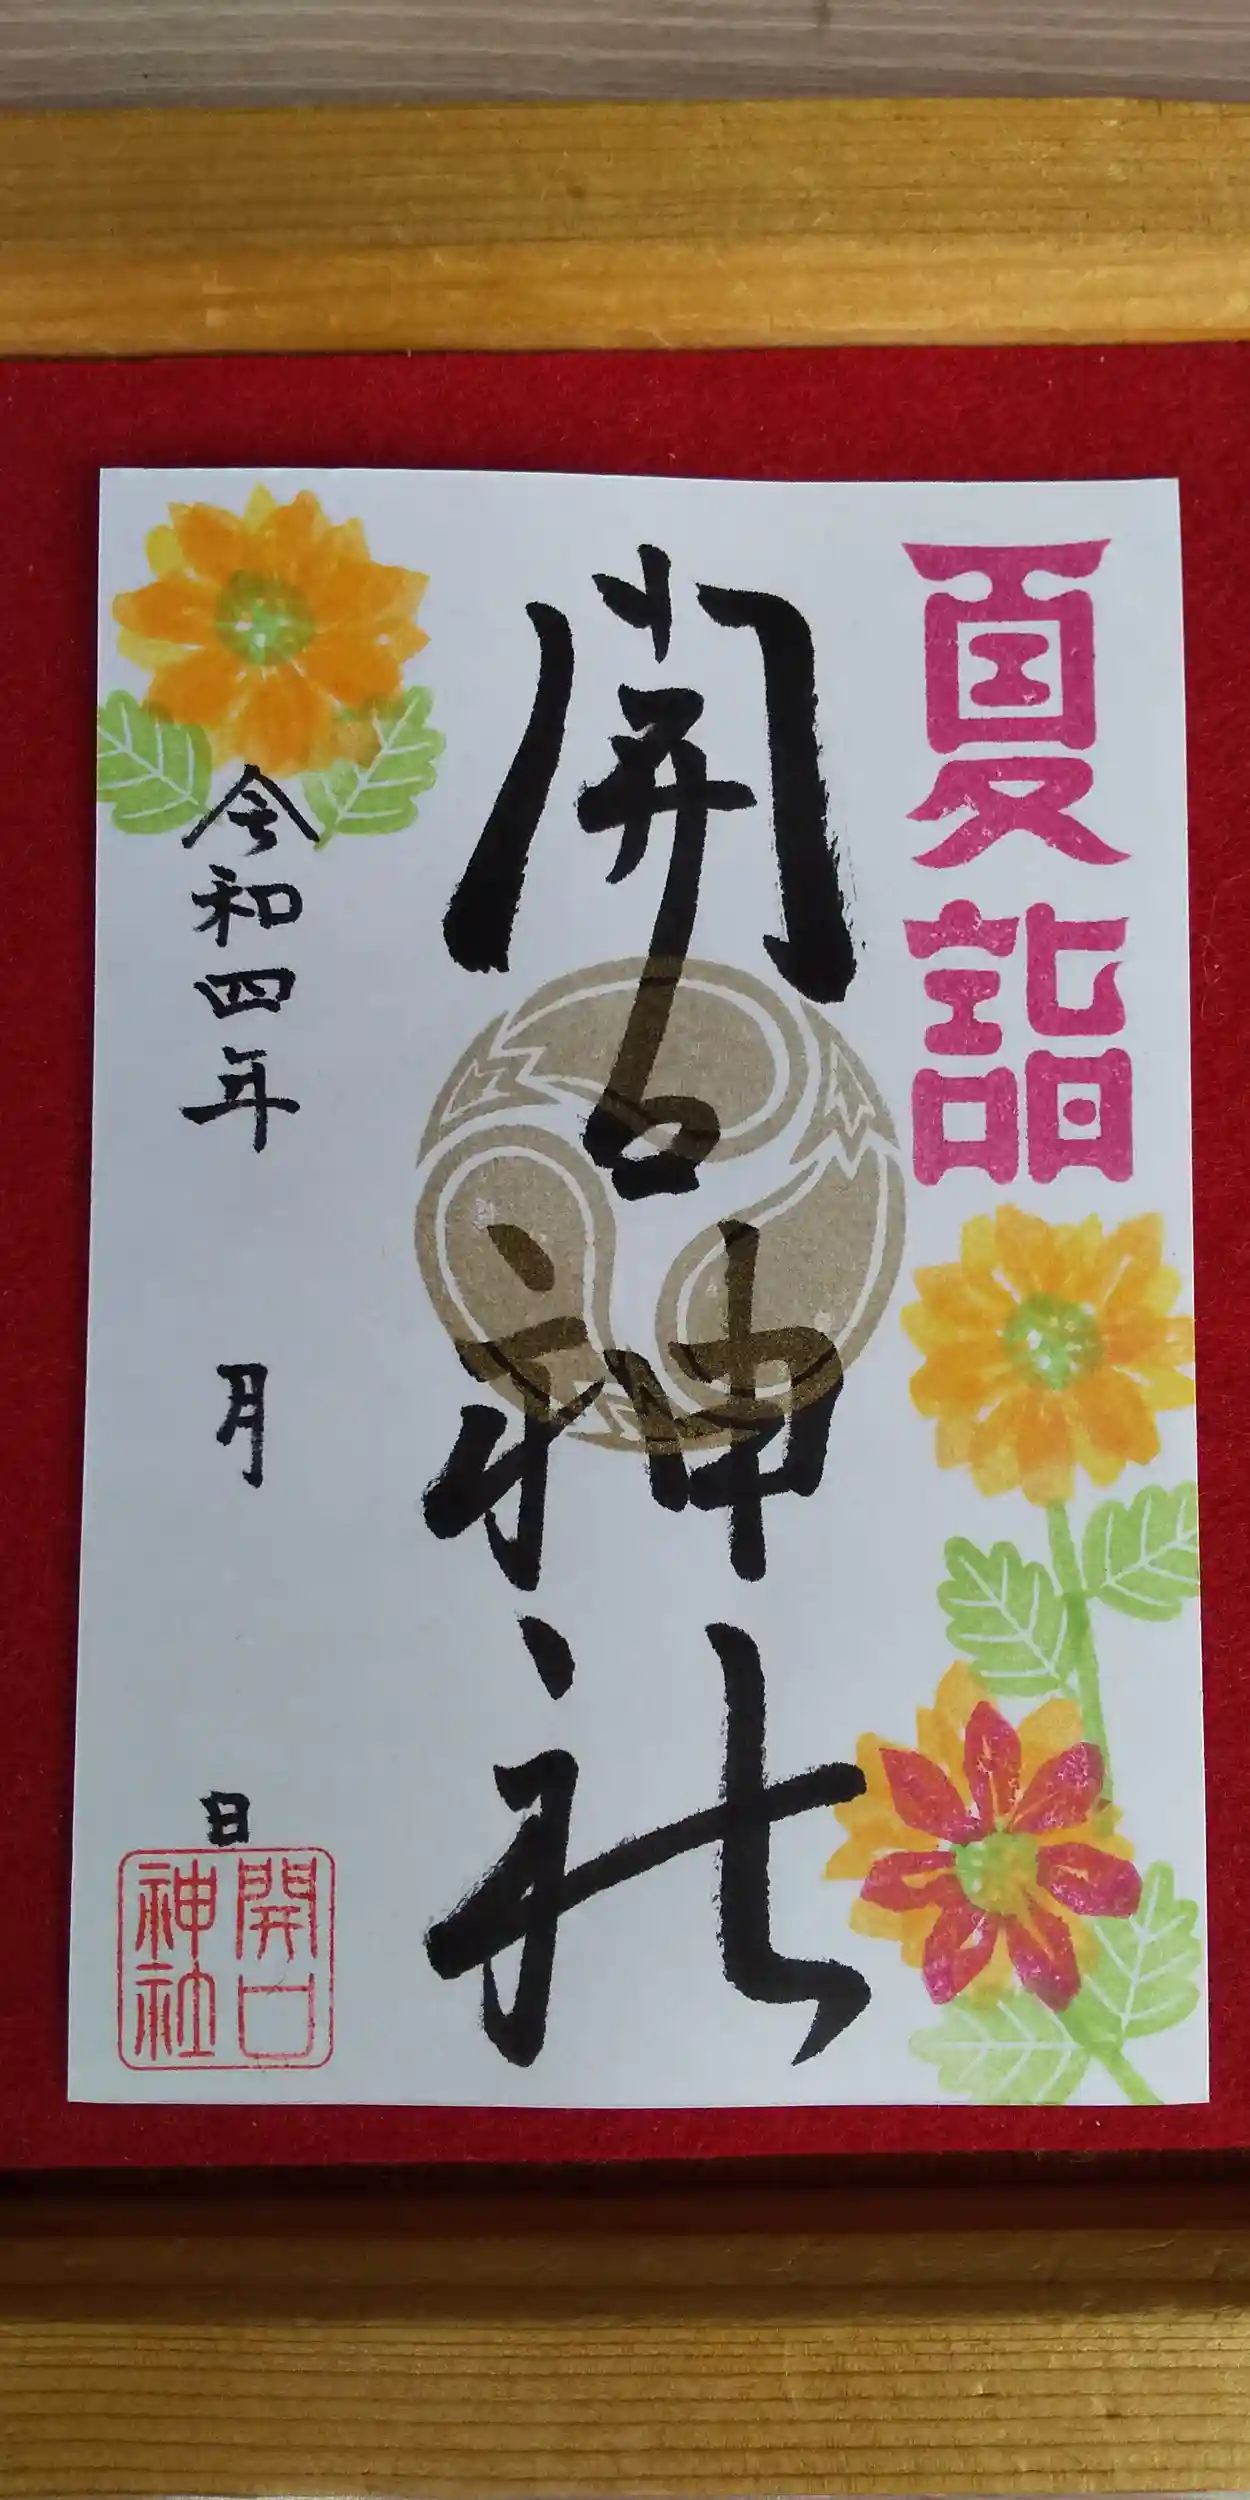 夏詣
開口神社
令和四年 月 日
開口
神社